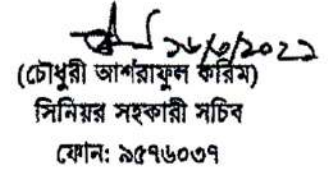 ২৮/৬/2022
(চৌধুরী আশরাফুল করিম)
সিনিয়র সহকারী সচিব
ফোন: ৯৫৭৬০৩৭